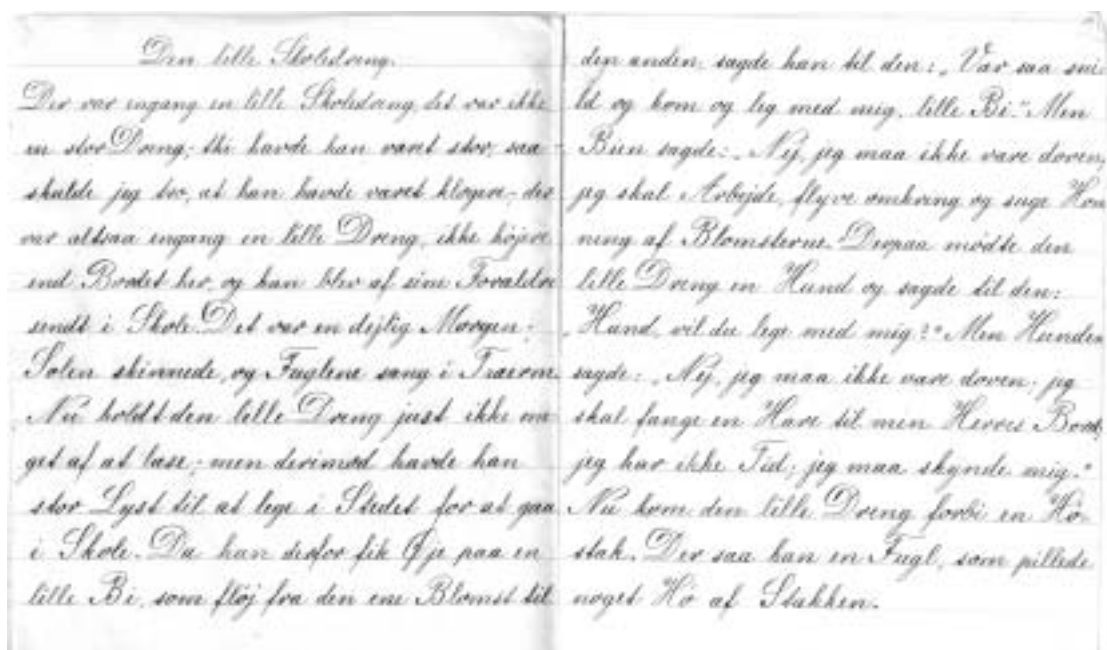 Den lille Skoledreng.
Der var engang en lille Skoledreng, det var ikke
en stor Dreng; thi havde han været stor, saa
skulde jeg tro, at han havde været klogere, der
var altsaa engang en lille Dreng, ikke højere
end Bordet her, og han blev af sine Forældre
sendt i Skole. Det var en dejlig Morgen;
Solen skinnede, og Fuglene sang i Træerne.
Nu holdt den lille Dreng just ikke me
get af at læse; men derimod havde han
stor Lyst til at lege i Stedet for at gaa
i Skole. Da han derfor fik Øje paa en
lille Bi, som fløj fra den ene Blomst til
den anden, sagde han til den: „Vær saa sni-
ld og kom og leg med mig, lille Bi." Men
Bien sagde: „Nej, jeg maa ikke være doven,
jeg skal Arbejde, flyve omkring og suge Hon
ning af Blomsterne. Derpaa mødte den
lille Dreng en Hund og sagde til den:
„Hund, vil du lege med mig?" Men Hunden
sagde: „Nej, jeg maa ikke være doven; jeg
skal fange en Hare til men Herres Bord;
jeg har ikke Tid; jeg maa skynde mig."
Nu kom den lille Dreng forbi en Hø-
stak. Der saa han en Fugl, som pillede
noget Hø af Stakken.